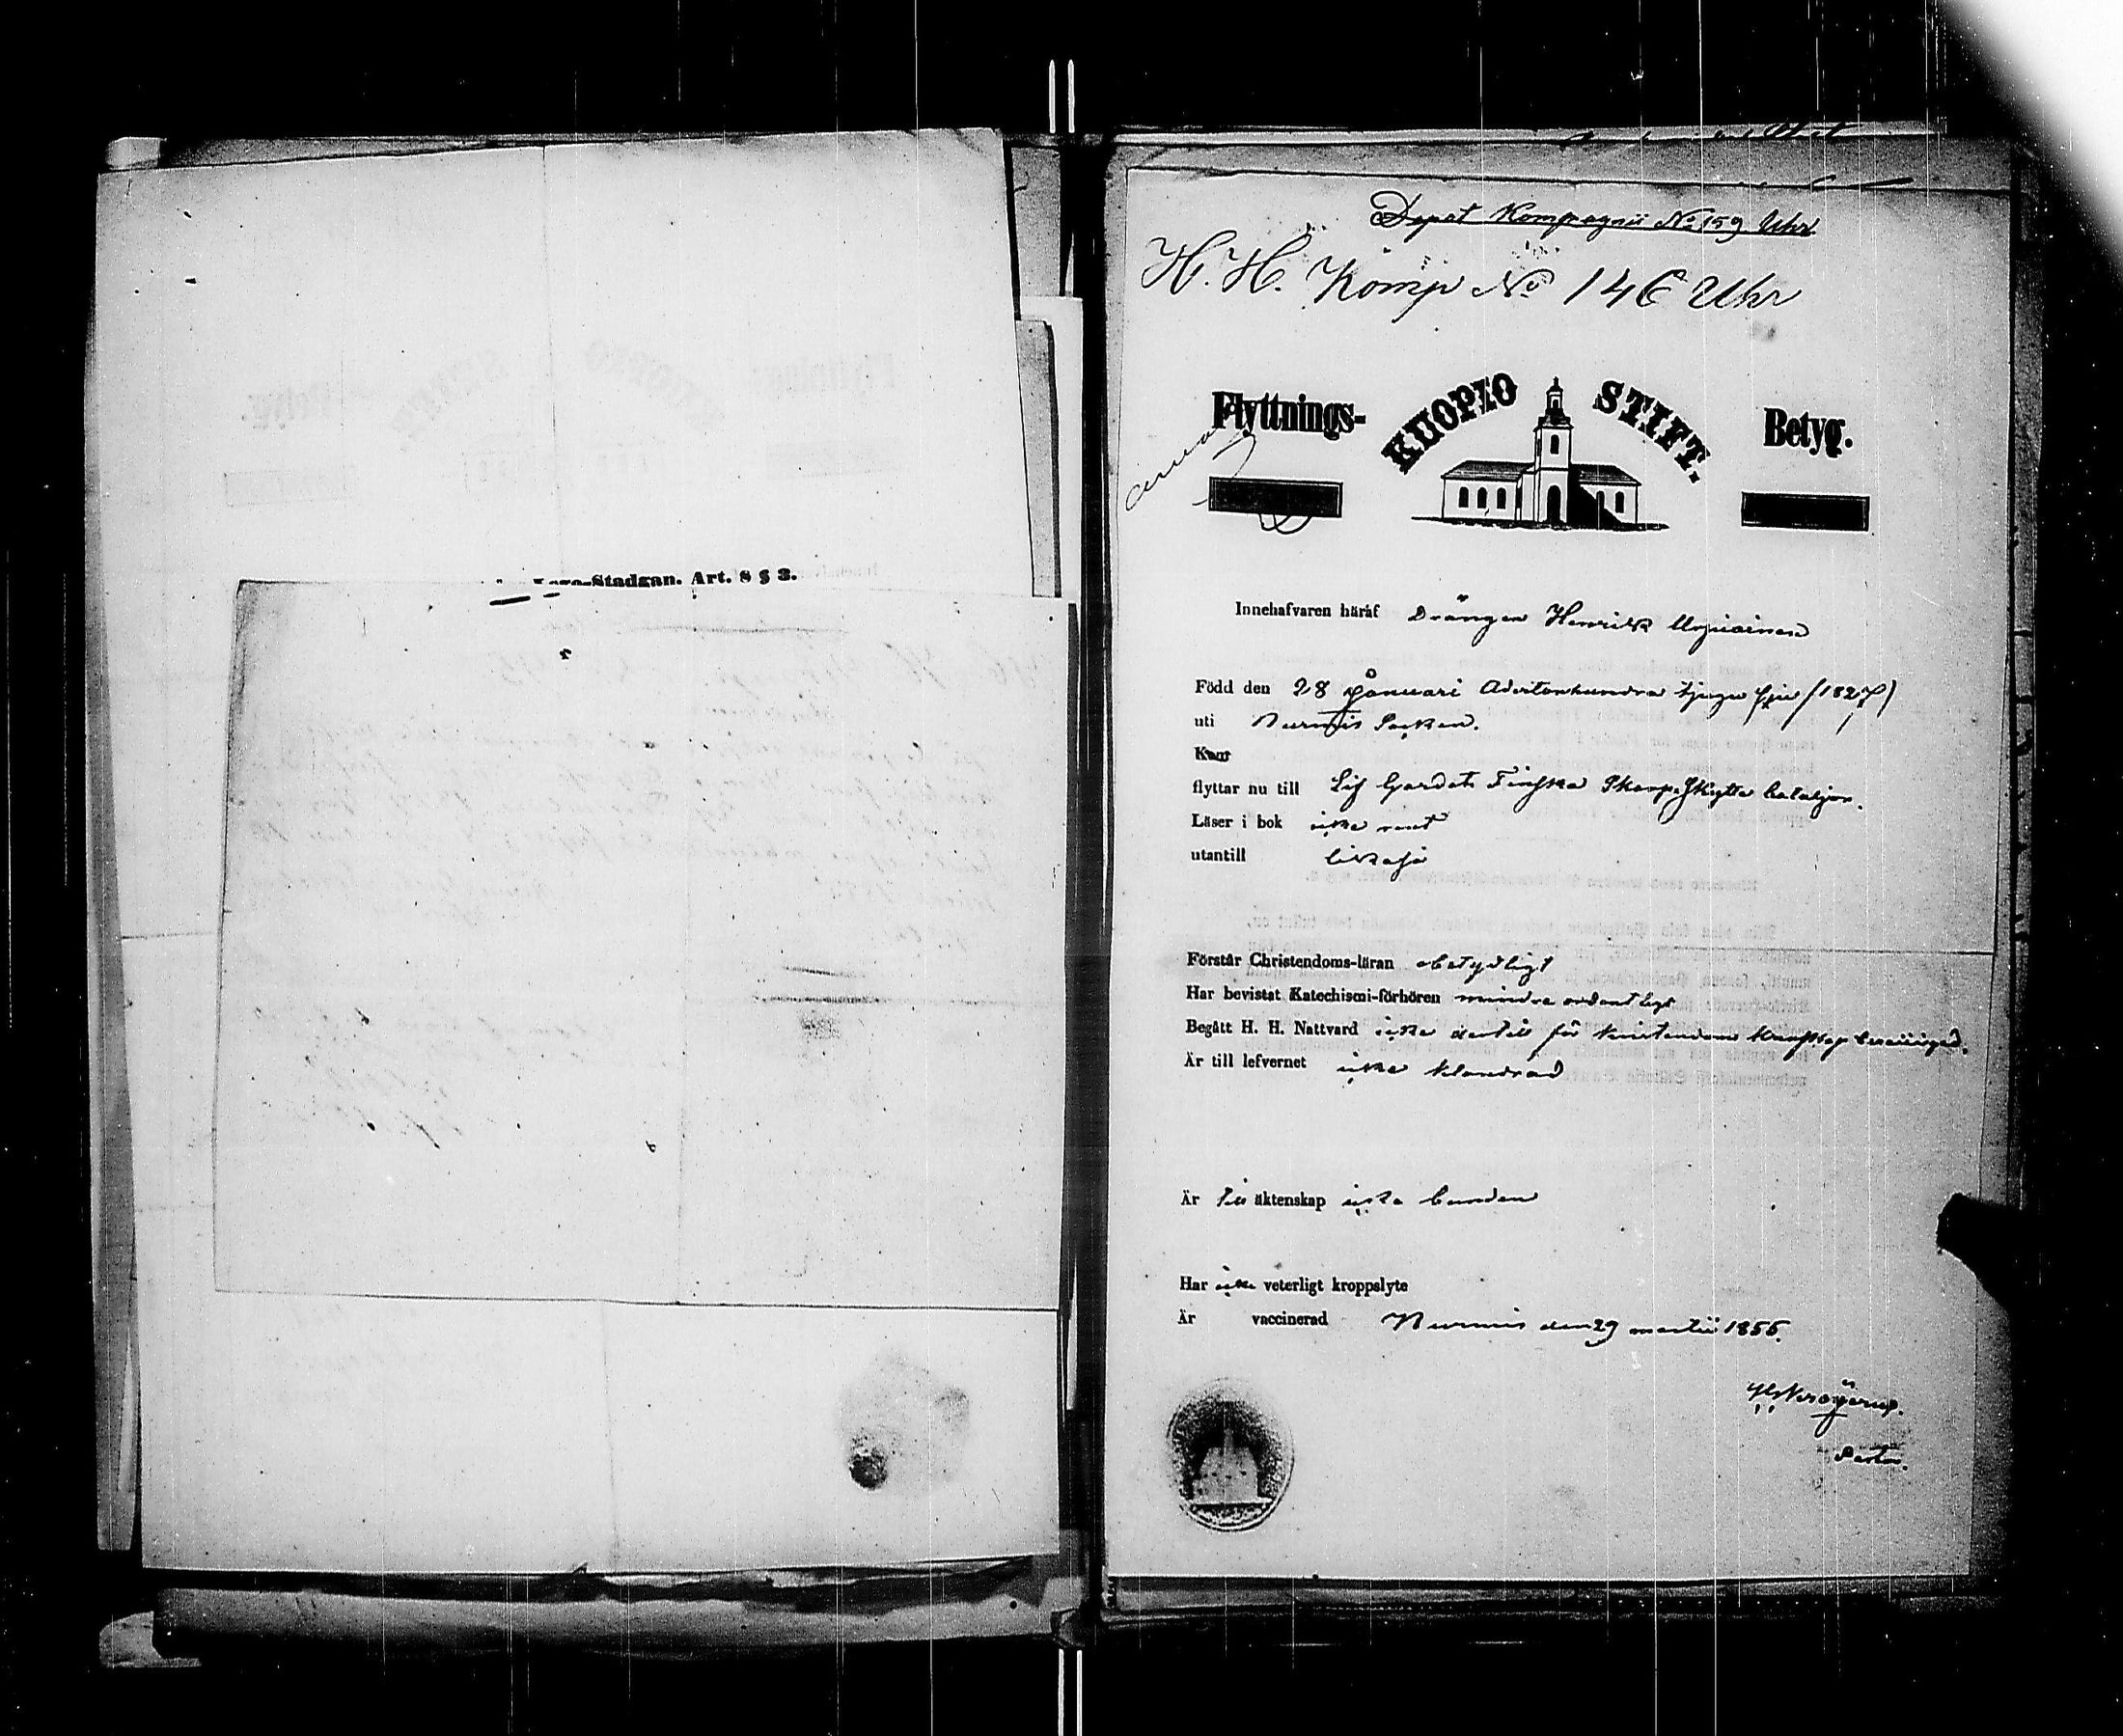 Lego-Stadgan. Art. 8 § 3.
Depot Kompagnii No 159 Uhr
H. H. Komp No 146 Uhr
Flyttnings-
KUOPIO STIFT.
Betyg.
Innehafvaren häraf Drängen Henrik
Född den 28 Januari Adertonhundra tjugu sju (1827)
uti Nurmis Socken.
Kom
flyttar nu till Lif Gardets Finska Skarp Skytte bataljon.
Läser i bok icke rent
utantill likaså
Förstår Christendoms-läran obetydligt
Har bevistat Katechismi-förhören mindre ordentligt
Begått H. H. Nattvard icke dertill för kristendoms kunskap
Är till lefvernet icke klandrad
Är till äktenskap icke bunden
Har icke veterligt kroppslyte
Är vaccinerad Nurmis den 29 martii 1855.
Pastor.